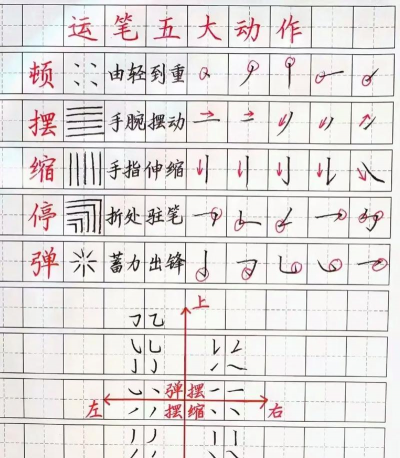 运笔五大动作
顿 由轻到重
摆 手腕摆动
缩 手指伸缩
停 折处驻笔
弹 蓄力出锋
上
弹 摆
左 右
摆 缩